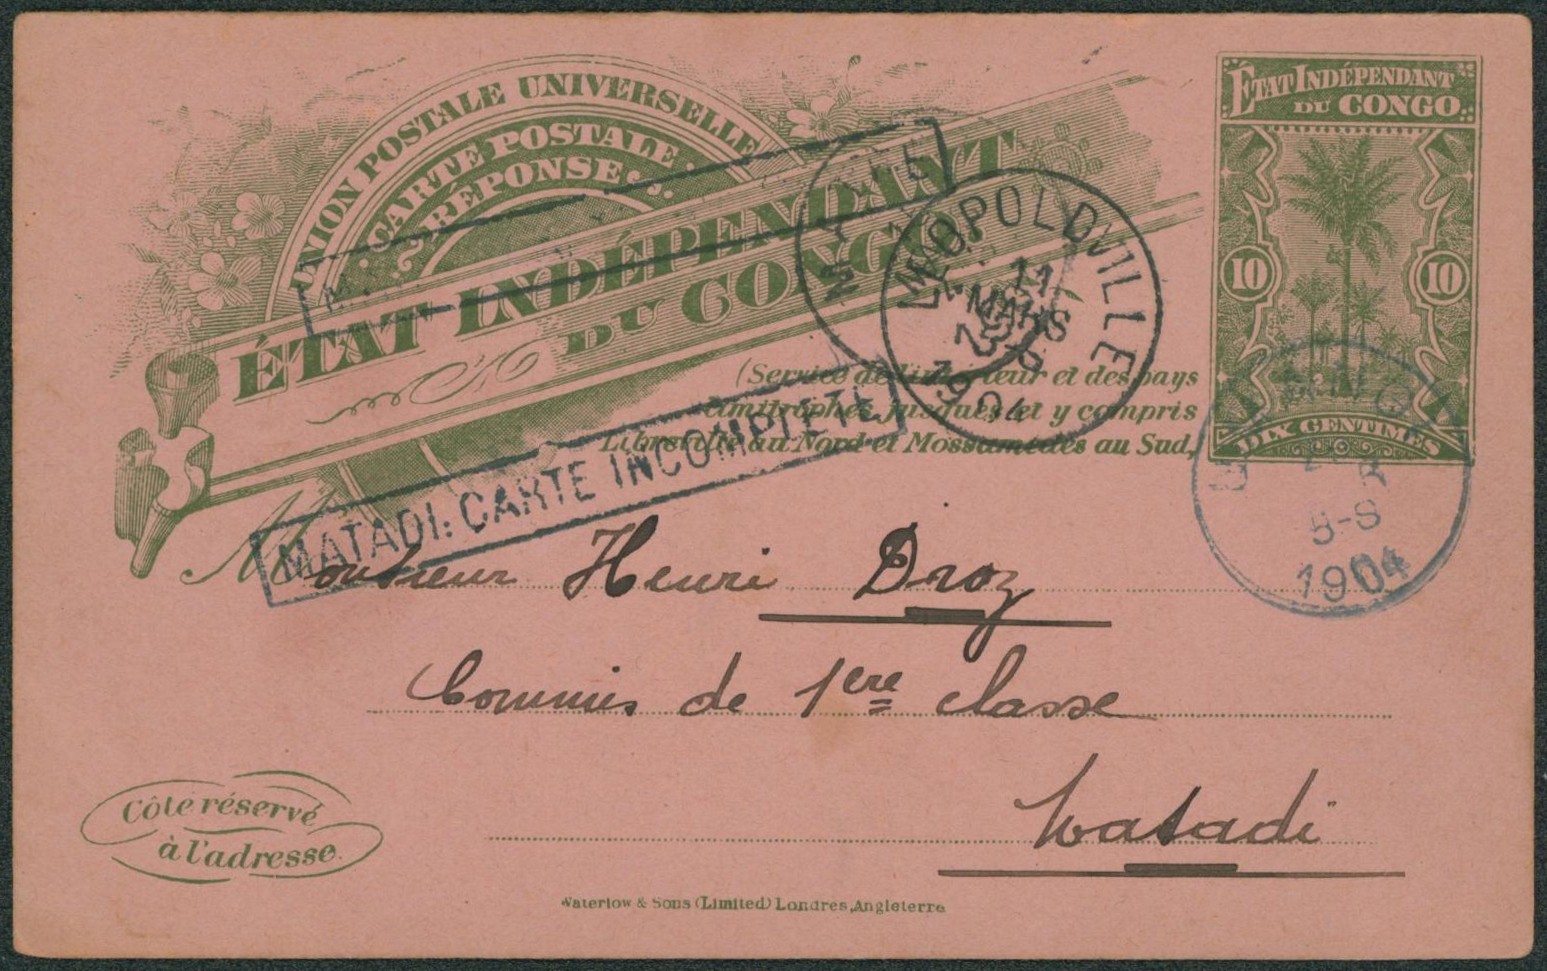 UNION POSTALE UNIVERSELLE
CARTE POSTALE
RÉPONSE
ÉTAT INDÉPENDANT
DU CONGO
ÉTAT INDÉPENDANT
DU CONGO
10 10
DIX CENTIMES
LÉOPOLDVILLE
11
MARS
1904
(Service de l'intérieur et des pays
limitrophes, jusqu'à et y compris
Libreville au Nord et Mossamedes au Sud,
MATADI: CARTE INCOMPLETE
5-S
1904
Monsieur Henri Droz
Commis de 1ere classe
Matadi
Côté réservé
à l'adresse.
Waterlow & Sons (Limited) Londres, Angleterre